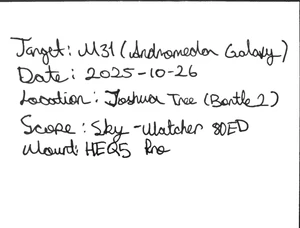 Target: M31 (Andromeda Galaxy)
Date: 2025-10-26
Location: Joshua Tree (Bortle 2)
Scope: Sky-Watcher 80ED
Mount: HEQ5 Pro